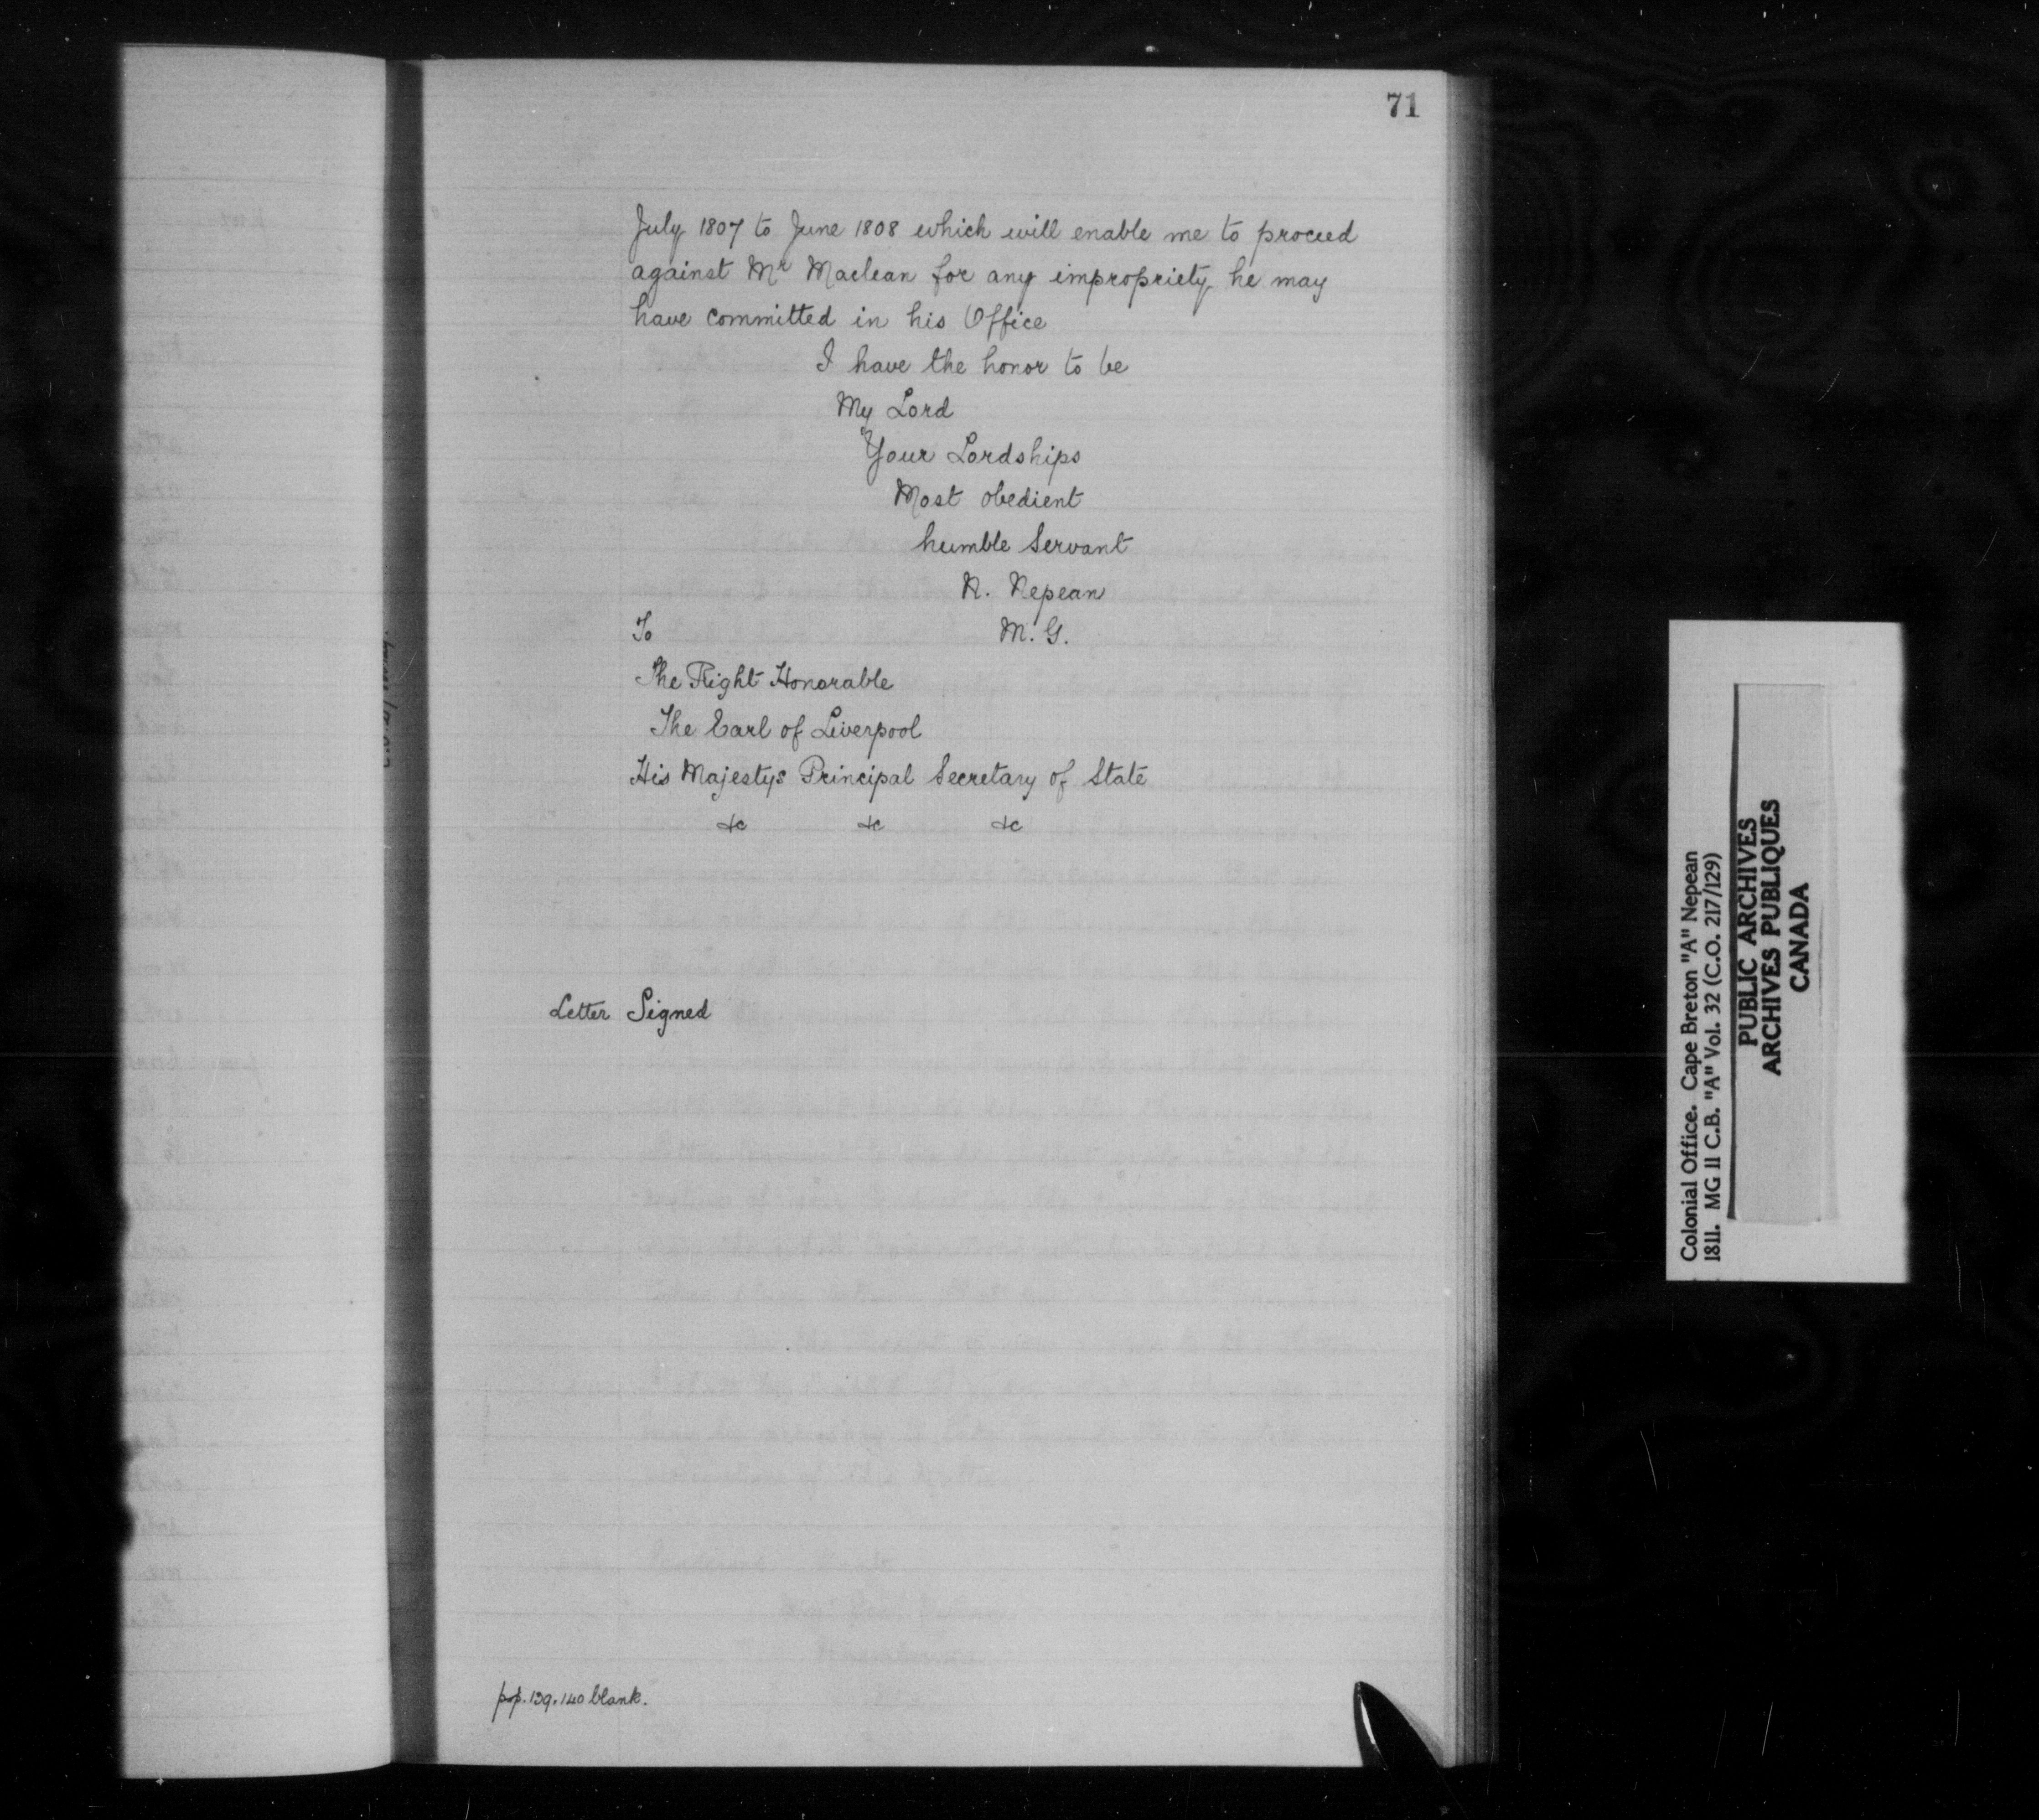 71
July 1807 to June 1808 which will enable me to proceed
against Mr Maclean for any impropriety he may
have committed in his Office
I have the honor to be
My Lord
Your Lordships
Most obedient
humble Servant
N. Nepean
To M. G.
The Right Honorable
The Earl of Liverpool
His Majestys Principal Secretary of State
&c &c &c
Letter Signed
pp. 139, 140 blank.
Colonial Office. Cape Breton "A" Nepean
1811. MG 11 C.B. "A" Vol. 32 (C.O. 217/129)
PUBLIC ARCHIVES
ARCHIVES PUBLIQUES
CANADA